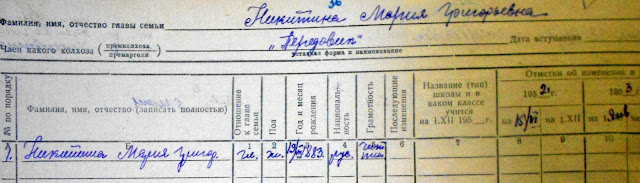 36
Фамилия, имя, отчество главы семьи Никитина Мария Григорьевна
Член какого колхоза (промколхоза / промартели) „Передовик" Дата вступления
уставная форма и наименование
№ по порядку
Фамилия, имя, отчество (записать полностью)
Отношение к главе семьи
Пол
Год и месяц рождения
Националь-
ность
Грамотность
Последующие изменения
Название (тип) школы и в каком классе учится на 1.XII 195 г.
Отметки об изменении в
195 2 г.
195 3
на 15/VI
на 1.XII
на 1 Янв
1 2 3 4 5 6 7 8 9 10
1. Никитина Мария Григор. гл. ж. 1883 рус.